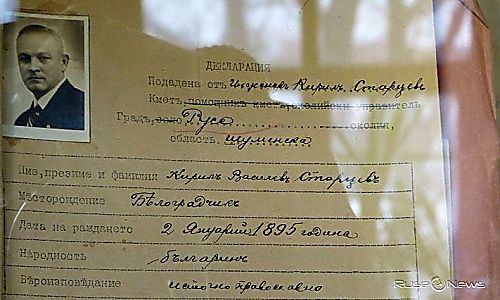 ДЕКЛАРАЦИЯ
Подадена отъ Кирилъ Старцевъ
Кметъ, помощникъ кметъ,
Градъ, село Русе околия,
область шуменска
Име, презиме и фамилия Кирилъ Василевъ Старцевъ
Месторождение Бѣлоградчикъ
Дата на раждането 2 Януарий 1895 година
Народность българинъ
Вѣроизповѣдание источно православно
Ruse News